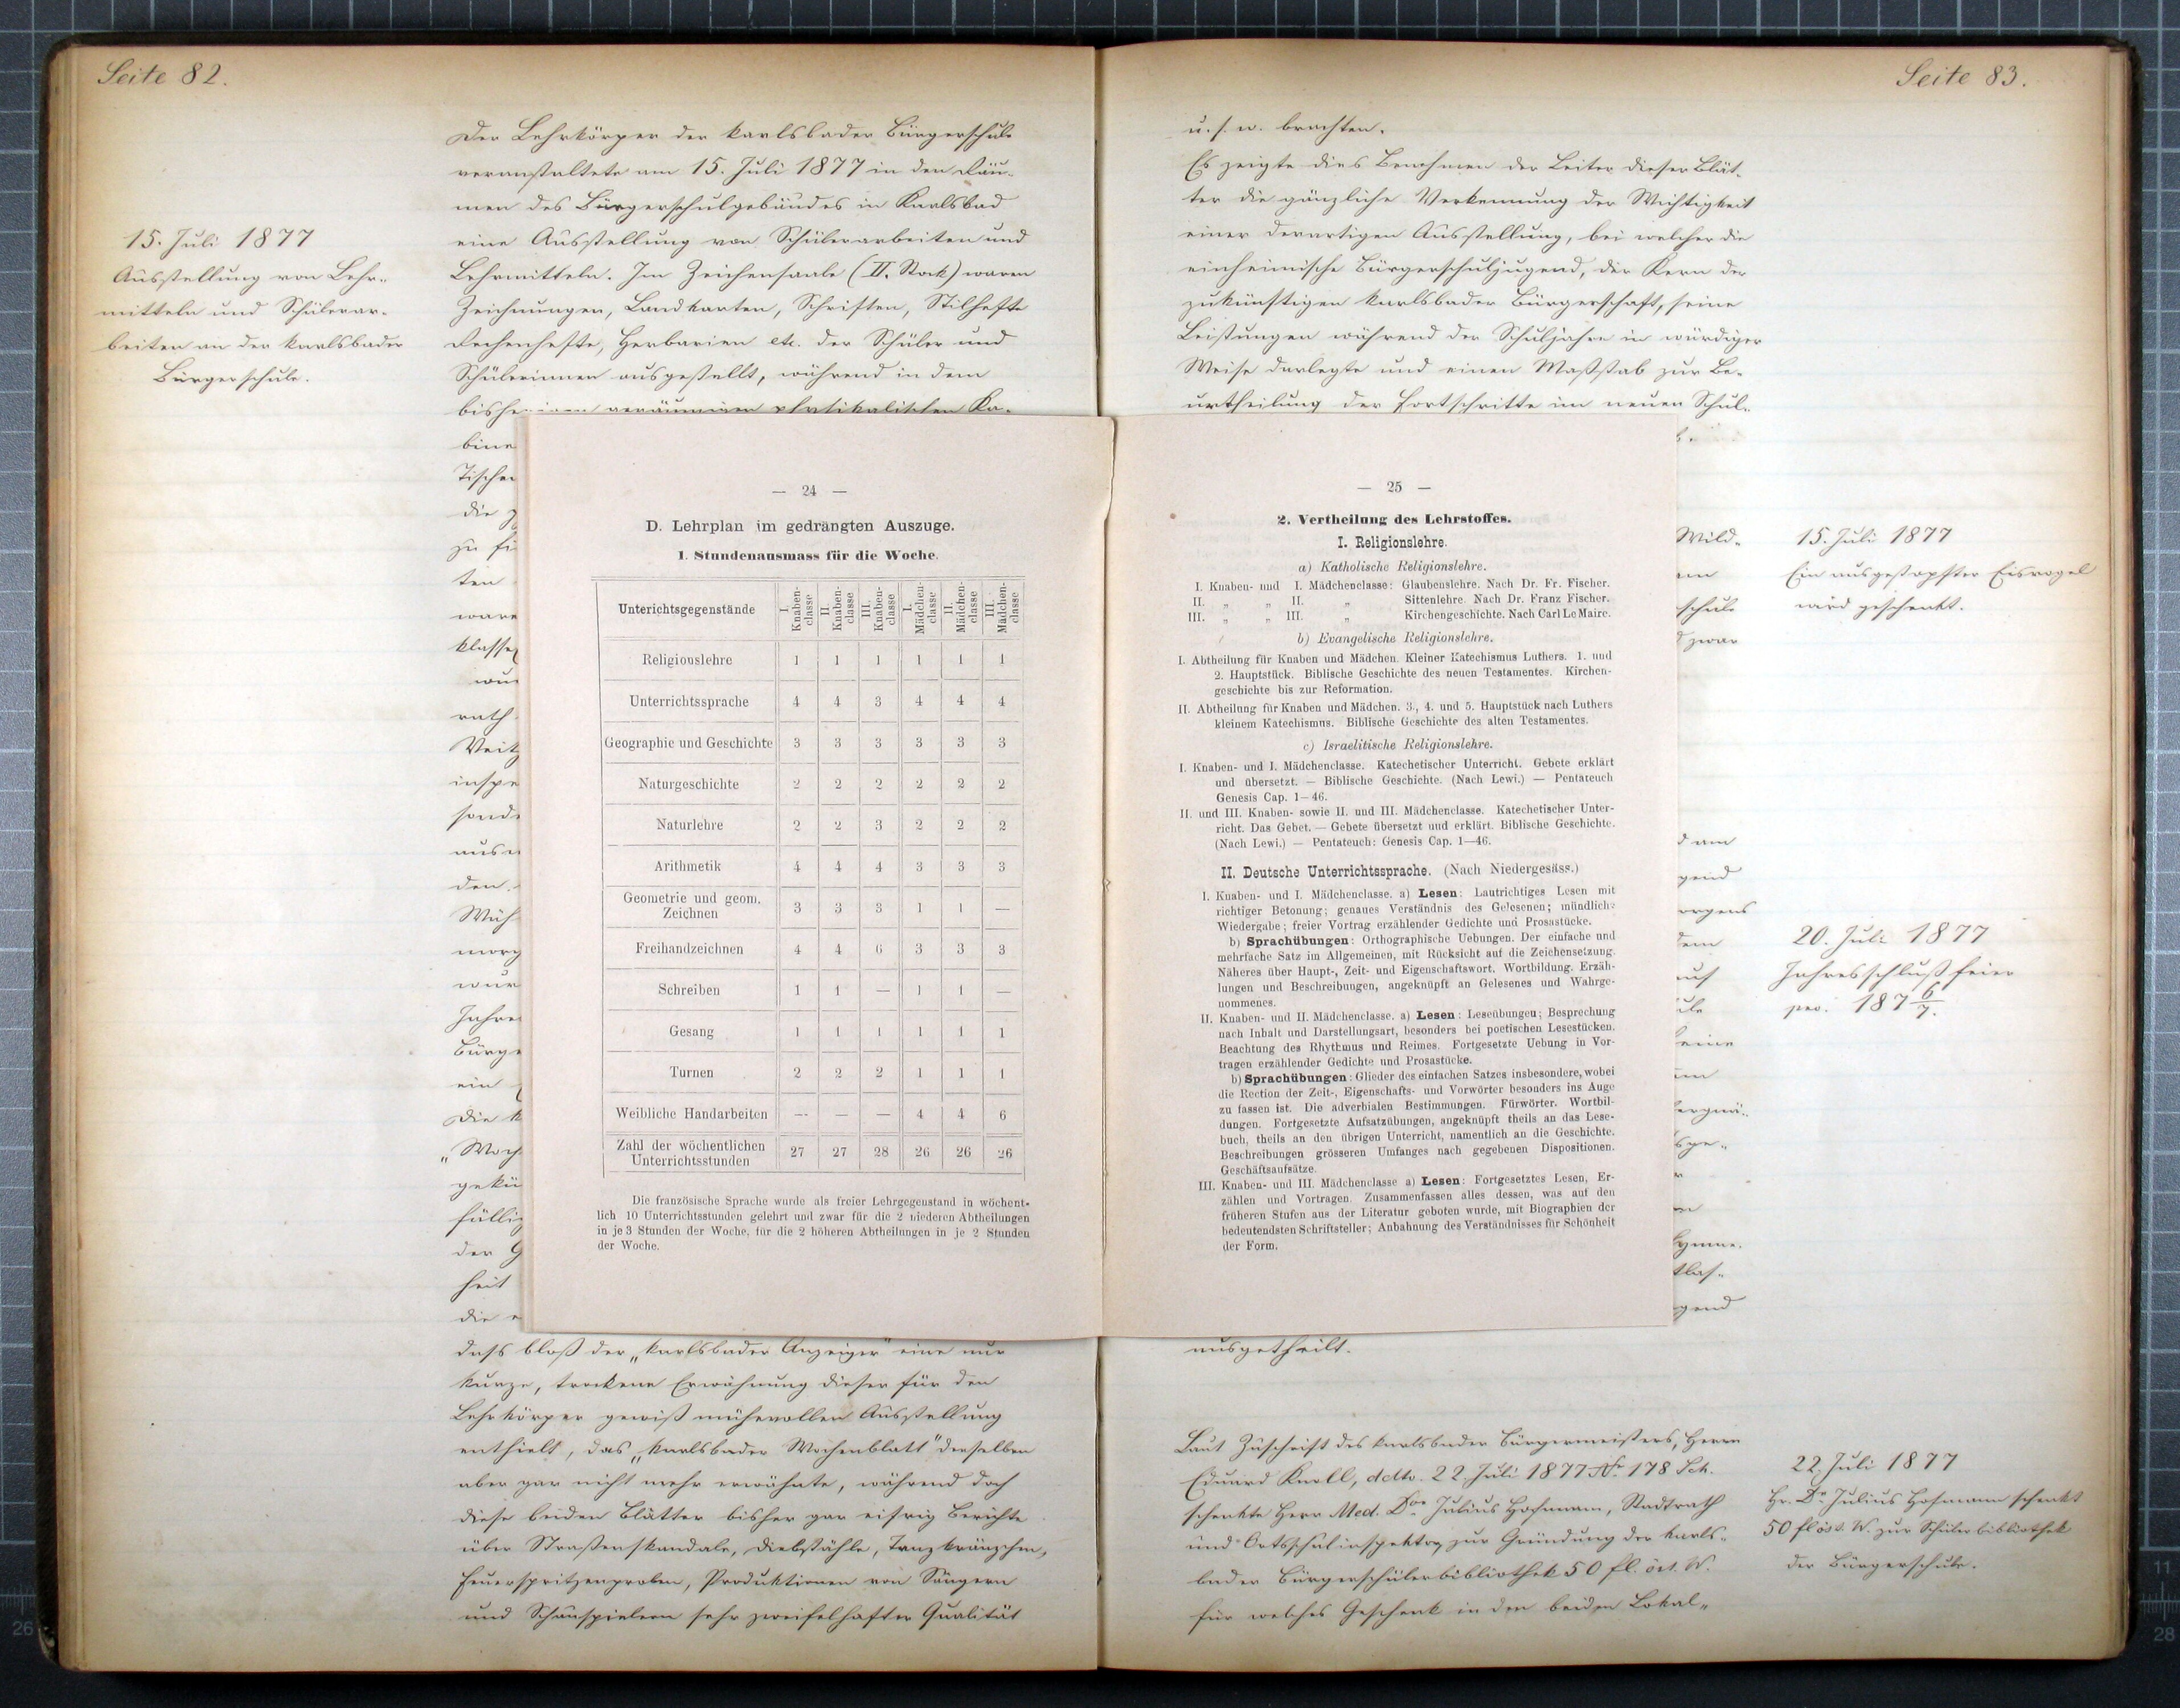 Seite 82.
Der Lehrkörper der Karlsbader Bürgerschule
veranstaltete am 15. Juli 1877 in den Räu-
men des Bürgerschulgebäudes in Karlsbad
eine Ausstellung von Schülerarbeiten und
Lehrmitteln. Im Zeichensaale (II. Stock) waren
Zeichnungen, Landkarten, Schriften, Stilhefte
Rechenhefte, Herbarien etc. der Schüler und
Schülerinnen ausgestellt, während in dem
bisherigen geräumigen physikalischen Ka-
bine
Tische
die
zu
ten
ware
klasse
wur
rath
Veit
inspe
sond
aus
den.
morg
wur
Jahre
Bürge
ein
Die K
„Woch
gekü
fällig
der G
heit
die
dass bloß der „Karlsbader Anzeiger" eine nur
kurze, trockene Erwähnung dieser für den
Lehrkörper gewiß mühevollen Ausstellung
enthielt, das „Karlsbader Wochenblatt" derselben
aber gar nicht mehr erwähnte, während doch
diese beiden Blätter bisher gar eifrig Berichte
über Straßenskandale, Diebstähle, Tanzkränzchen,
Feuerspritzenproben, Produktionen von Sängern
und Schauspielern sehr zweifelhafter Qualität
15. Juli 1877
Ausstellung von Lehr-
mitteln und Schülerar-
beiten an der Karlsbader
Bürgerschule.
— 24 —
D. Lehrplan im gedrängten Auszuge.
1. Stundenausmass für die Woche.
Unterichtsgegenstände I. Knaben-classe II. Knaben-classe III. Knaben-classe I. Mädchen-classe II. Mädchen-classe III. Mädchen-classe
Religionslehre 1 1 1 1 1 1
Unterrichtssprache 4 4 3 4 4 4
Geographie und Geschichte 3 3 3 3 3 3
Naturgeschichte 2 2 2 2 2 2
Naturlehre 2 2 3 2 2 2
Arithmetik 4 4 4 3 3 3
Geometrie und geom.
Zeichnen 3 3 3 1 1 —
Freihandzeichnen 4 4 6 3 3 3
Schreiben 1 1 — 1 1 —
Gesang 1 1 1 1 1 1
Turnen 2 2 2 1 1 1
Weibliche Handarbeiten — — — 4 4 6
Zahl der wöchentlichen
Unterrichtsstunden 27 27 28 26 26 26
Die französische Sprache wurde als freier Lehrgegenstand in wöchent-
lich 10 Unterrichtsstunden gelehrt und zwar für die 2 niederen Abtheilungen
in je 3 Stunden der Woche, für die 2 höheren Abtheilungen in je 2 Stunden
der Woche.
— 25 —
2. Vertheilung des Lehrstoffes.
I. Religionslehre.
a) Katholische Religionslehre.
I. Knaben- und I. Mädchenclasse: Glaubenslehre. Nach Dr. Fr. Fischer.
II. „ „ II. „ Sittenlehre. Nach Dr. Franz Fischer.
III. „ „ III. „ Kirchengeschichte. Nach Carl Le Maire.
b) Evangelische Religionslehre.
I. Abtheilung für Knaben und Mädchen. Kleiner Katechismus Luthers. 1. und
2. Hauptstück. Biblische Geschichte des neuen Testamentes. Kirchen-
geschichte bis zur Reformation.
II. Abtheilung für Knaben und Mädchen. 3., 4. und 5. Hauptstück nach Luthers
kleinem Katechismus. Biblische Geschichte des alten Testamentes.
c) Israelitische Religionslehre.
I. Knaben- und I. Mädchenclasse. Katechetischer Unterricht. Gebete erklärt
und übersetzt. — Biblische Geschichte. (Nach Lewi.) — Pentateuch
Genesis Cap. 1—46.
II. und III. Knaben- sowie II. und III. Mädchenclasse. Katechetischer Unter-
richt. Das Gebet. — Gebete übersetzt und erklärt. Biblische Geschichte.
(Nach Lewi.) — Pentateuch: Genesis Cap. 1—46.
II. Deutsche Unterrichtssprache. (Nach Niedergesäss.)
I. Knaben- und I. Mädchenclasse. a) Lesen: Lautrichtiges Lesen mit
richtiger Betonung; genaues Verständnis des Gelesenen; mündliche
Wiedergabe; freier Vortrag erzählender Gedichte und Prosastücke.
b) Sprachübungen: Orthographische Uebungen. Der einfache und
mehrfache Satz im Allgemeinen, mit Rücksicht auf die Zeichensetzung.
Näheres über Haupt-, Zeit- und Eigenschaftswort. Wortbildung. Erzäh-
lungen und Beschreibungen, angeknüpft an Gelesenes und Wahrge-
nommenes.
II. Knaben- und II. Mädchenclasse. a) Lesen: Leseübungen; Besprechung
nach Inhalt und Darstellungsart, besonders bei poetischen Lesestücken.
Beachtung des Rhythmus und Reimes. Fortgesetzte Uebung in Vor-
tragen erzählender Gedichte und Prosastücke.
b) Sprachübungen: Glieder des einfachen Satzes insbesondere, wobei
die Rection der Zeit-, Eigenschafts- und Vorwörter besonders ins Auge
zu fassen ist. Die adverbialen Bestimmungen. Fürwörter. Wortbil-
dungen. Fortgesetzte Aufsatzübungen, angeknüpft theils an das Lese-
buch, theils an den übrigen Unterricht, namentlich an die Geschichte.
Beschreibungen grösseren Umfanges nach gegebenen Dispositionen.
Geschäftsaufsätze.
III. Knaben- und III. Mädchenclasse a) Lesen: Fortgesetztes Lesen, Er-
zählen und Vortragen. Zusammenfassen alles dessen, was auf den
früheren Stufen aus der Literatur geboten wurde, mit Biographien der
bedeutendsten Schriftsteller; Anbahnung des Verständnisses für Schönheit
der Form.
Seite 83.
u. s. w. brachten.
Es zeigte dies Benehmen der Leiter dieser Blät-
ter die gänzliche Verkennung der Wichtigkeit
einer derartigen Ausstellung, bei welcher die
einheimische Bürgerschuljugend, der Kern der
zukünftigen Karlsbader Bürgerschaft, seine
Leistungen während der Schuljahre in würdiger
Weise darlegte und einen Maßstab zur Be-
urtheilung der Fortschritte im neuen Schul-
Wild-
schule
zwar
gend
orgens
auf
eine
ergnü-
ymne.
gend
ausgetheilt.
Laut Zuschrift des Karlsbader Bürgermeisters, Herrn
Eduard Knoll, ddto. 22. Juli 1877 No. 178 Sch.
schenkte Herr Med. Dor Julius Hofmann, Stadtrath
und Ortsschulinspektor zur Gründung der Karls-
bader Bürgerschülerbibliothek 50 fl. öst. W.
für welches Geschenk in den beiden Lokal-
15. Juli 1877
Ein ausgestopfter Eisvogel
wird geschenkt.
20. Juli 1877
Jahresschlußfeier
pro. 187 6/7.
22. Juli 1877
Hr. Dr. Julius Hofmann schenkt
50 fl öst. W. zur Schülerbibliothek
der Bürgerschule.
26
11
28